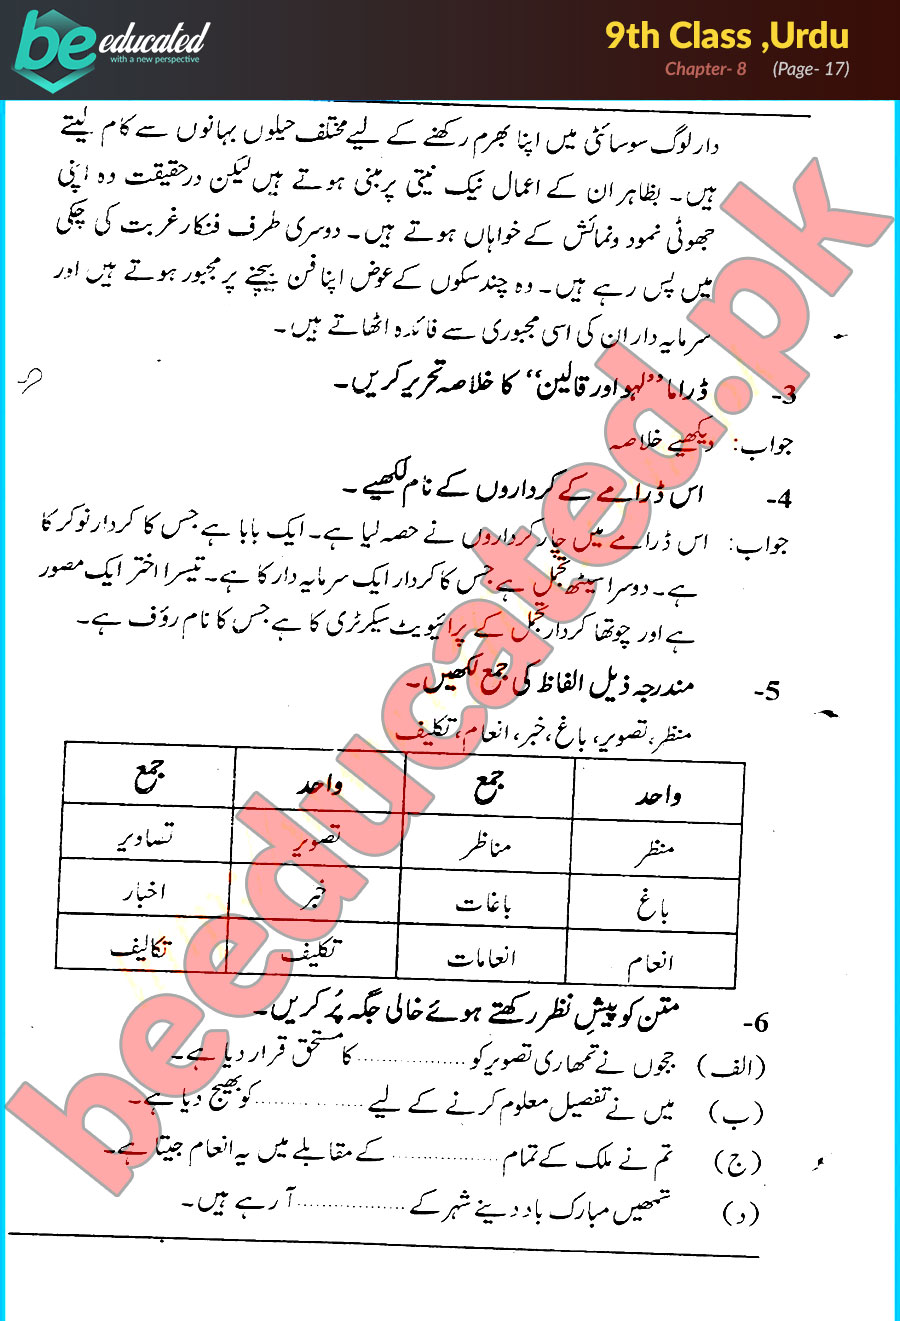 be educated
with a new perspective
9th Class ,Urdu
Chapter- 8 (Page- 17)
دار لوگ سوسائٹی میں اپنا بھرم رکھنے کے لیے مختلف حیلوں بہانوں سے کام لیتے
ہیں۔ بظاہر ان کے اعمال نیک نیتی پر مبنی ہوتے ہیں لیکن درحقیقت وہ اپنی
جھوٹی نمود ونمائش کے خواہاں ہوتے ہیں۔ دوسری طرف فنکار غربت کی چکی
میں پس رہے ہیں۔ وہ چند سکوں کے عوض اپنا فن بیچنے پر مجبور ہوتے ہیں اور
سرمایہ دار ان کی اسی مجبوری سے فائدہ اٹھاتے ہیں۔
3- ڈراما ”لہو اور قالین“ کا خلاصہ تحریر کریں۔
جواب: دیکھیے خلاصہ
4- اس ڈرامے کے کرداروں کے نام لکھیے۔
جواب: اس ڈرامے میں چار کرداروں نے حصہ لیا ہے۔ ایک بابا ہے جس کا کردار نوکر کا
ہے۔ دوسرا سیٹھ تجمل ہے جس کا کردار ایک سرمایہ دار کا ہے۔ تیسرا اختر ایک مصور
ہے اور چوتھا کردار تجمل کے پرائیویٹ سیکرٹری کا ہے جس کا نام رؤف ہے۔
5- مندرجہ ذیل الفاظ کی جمع لکھیں۔
منظر، تصویر، باغ، خبر، انعام، تکلیف
واحد جمع واحد جمع
منظر مناظر تصویر تساویر
باغ باغات خبر اخبار
انعام انعامات تکلیف تکالیف
6- متن کو پیشِ نظر رکھتے ہوئے خالی جگہ پُر کریں۔
(الف) ججوں نے تمھاری تصویر کو .................. کا مستحق قرار دیا ہے۔
(ب) میں نے تفصیل معلوم کرنے کے لیے .................. کو بھیج دیا ہے۔
(ج) تم نے ملک کے تمام .................. کے مقابلے میں یہ انعام جیتا ہے۔
(د) تمھیں مبارک باد دینے شہر کے .................. آ رہے ہیں۔
beeducated.pk